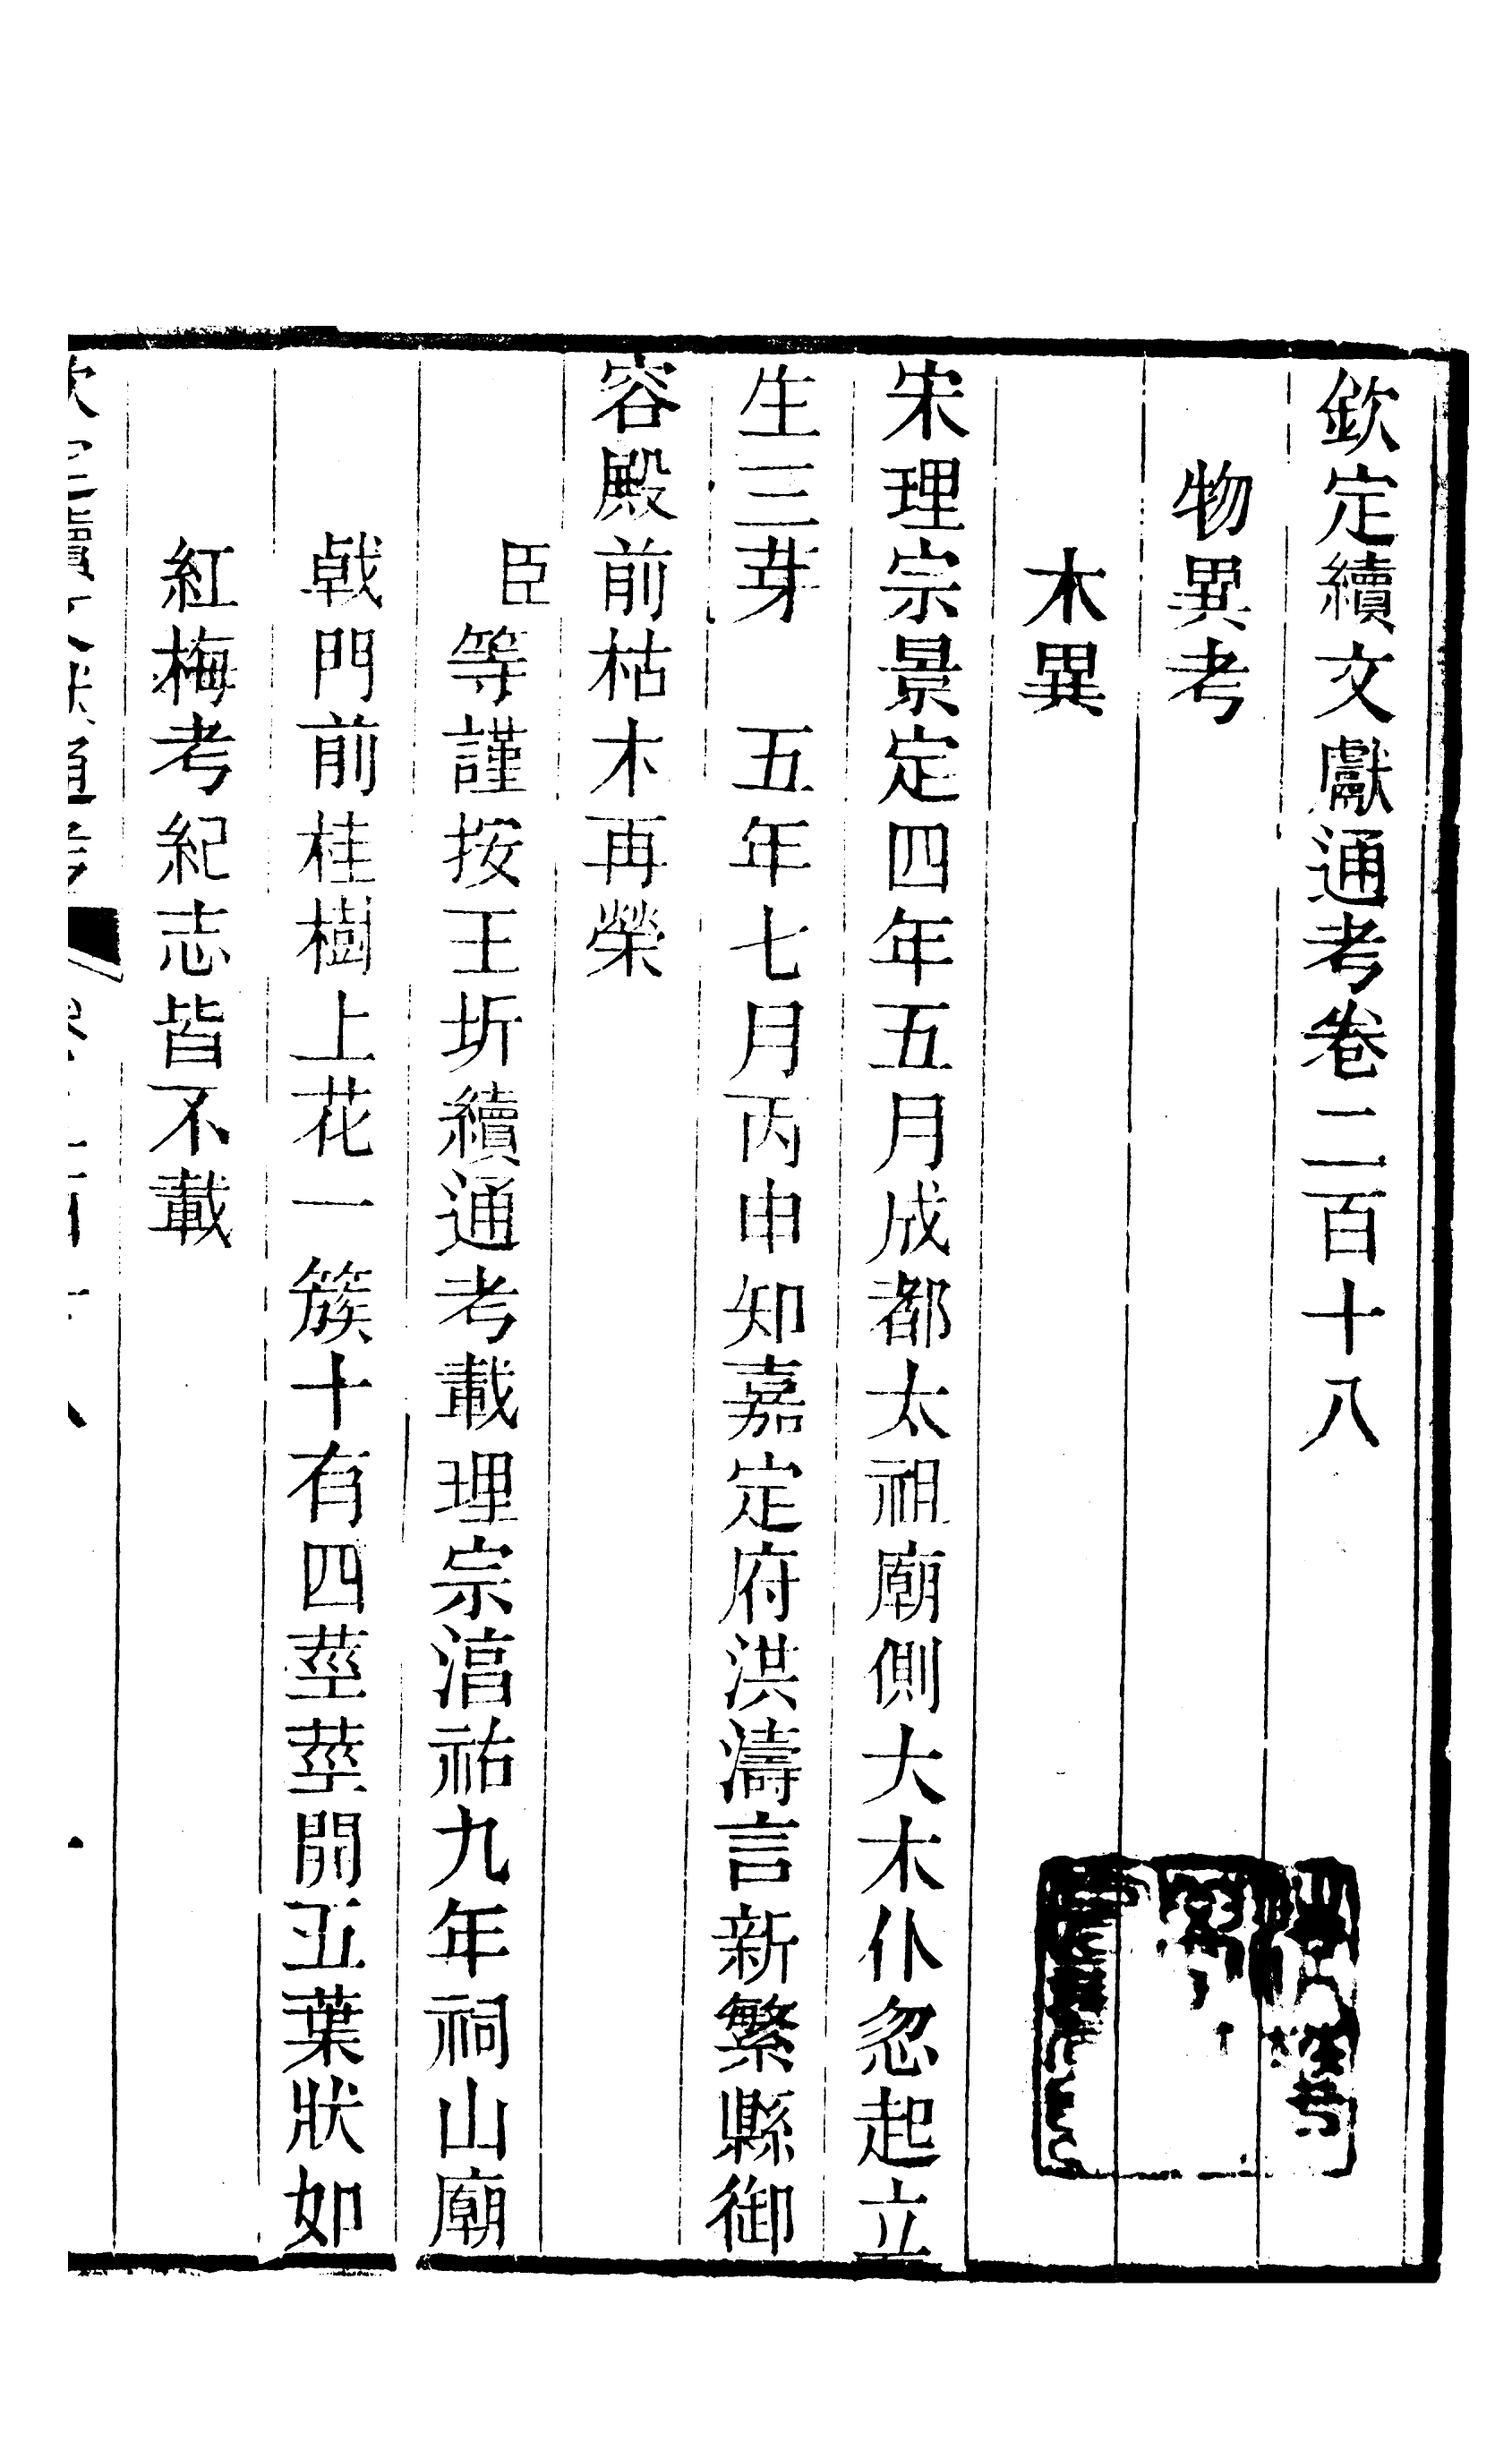 欽定續文獻通考卷二百十八
物異考
木異
宋理宗景定四年五月成都太祖廟側大木仆忽起立
生三芽　五年七月丙申知嘉定府洪濤言新繁縣御
容殿前枯木再榮
臣等謹按王圻續通考載理宗湻祐九年祠山廟
戟門前桂樹上花一簇十有四莖莖開五葉狀如
紅梅考紀志皆不載